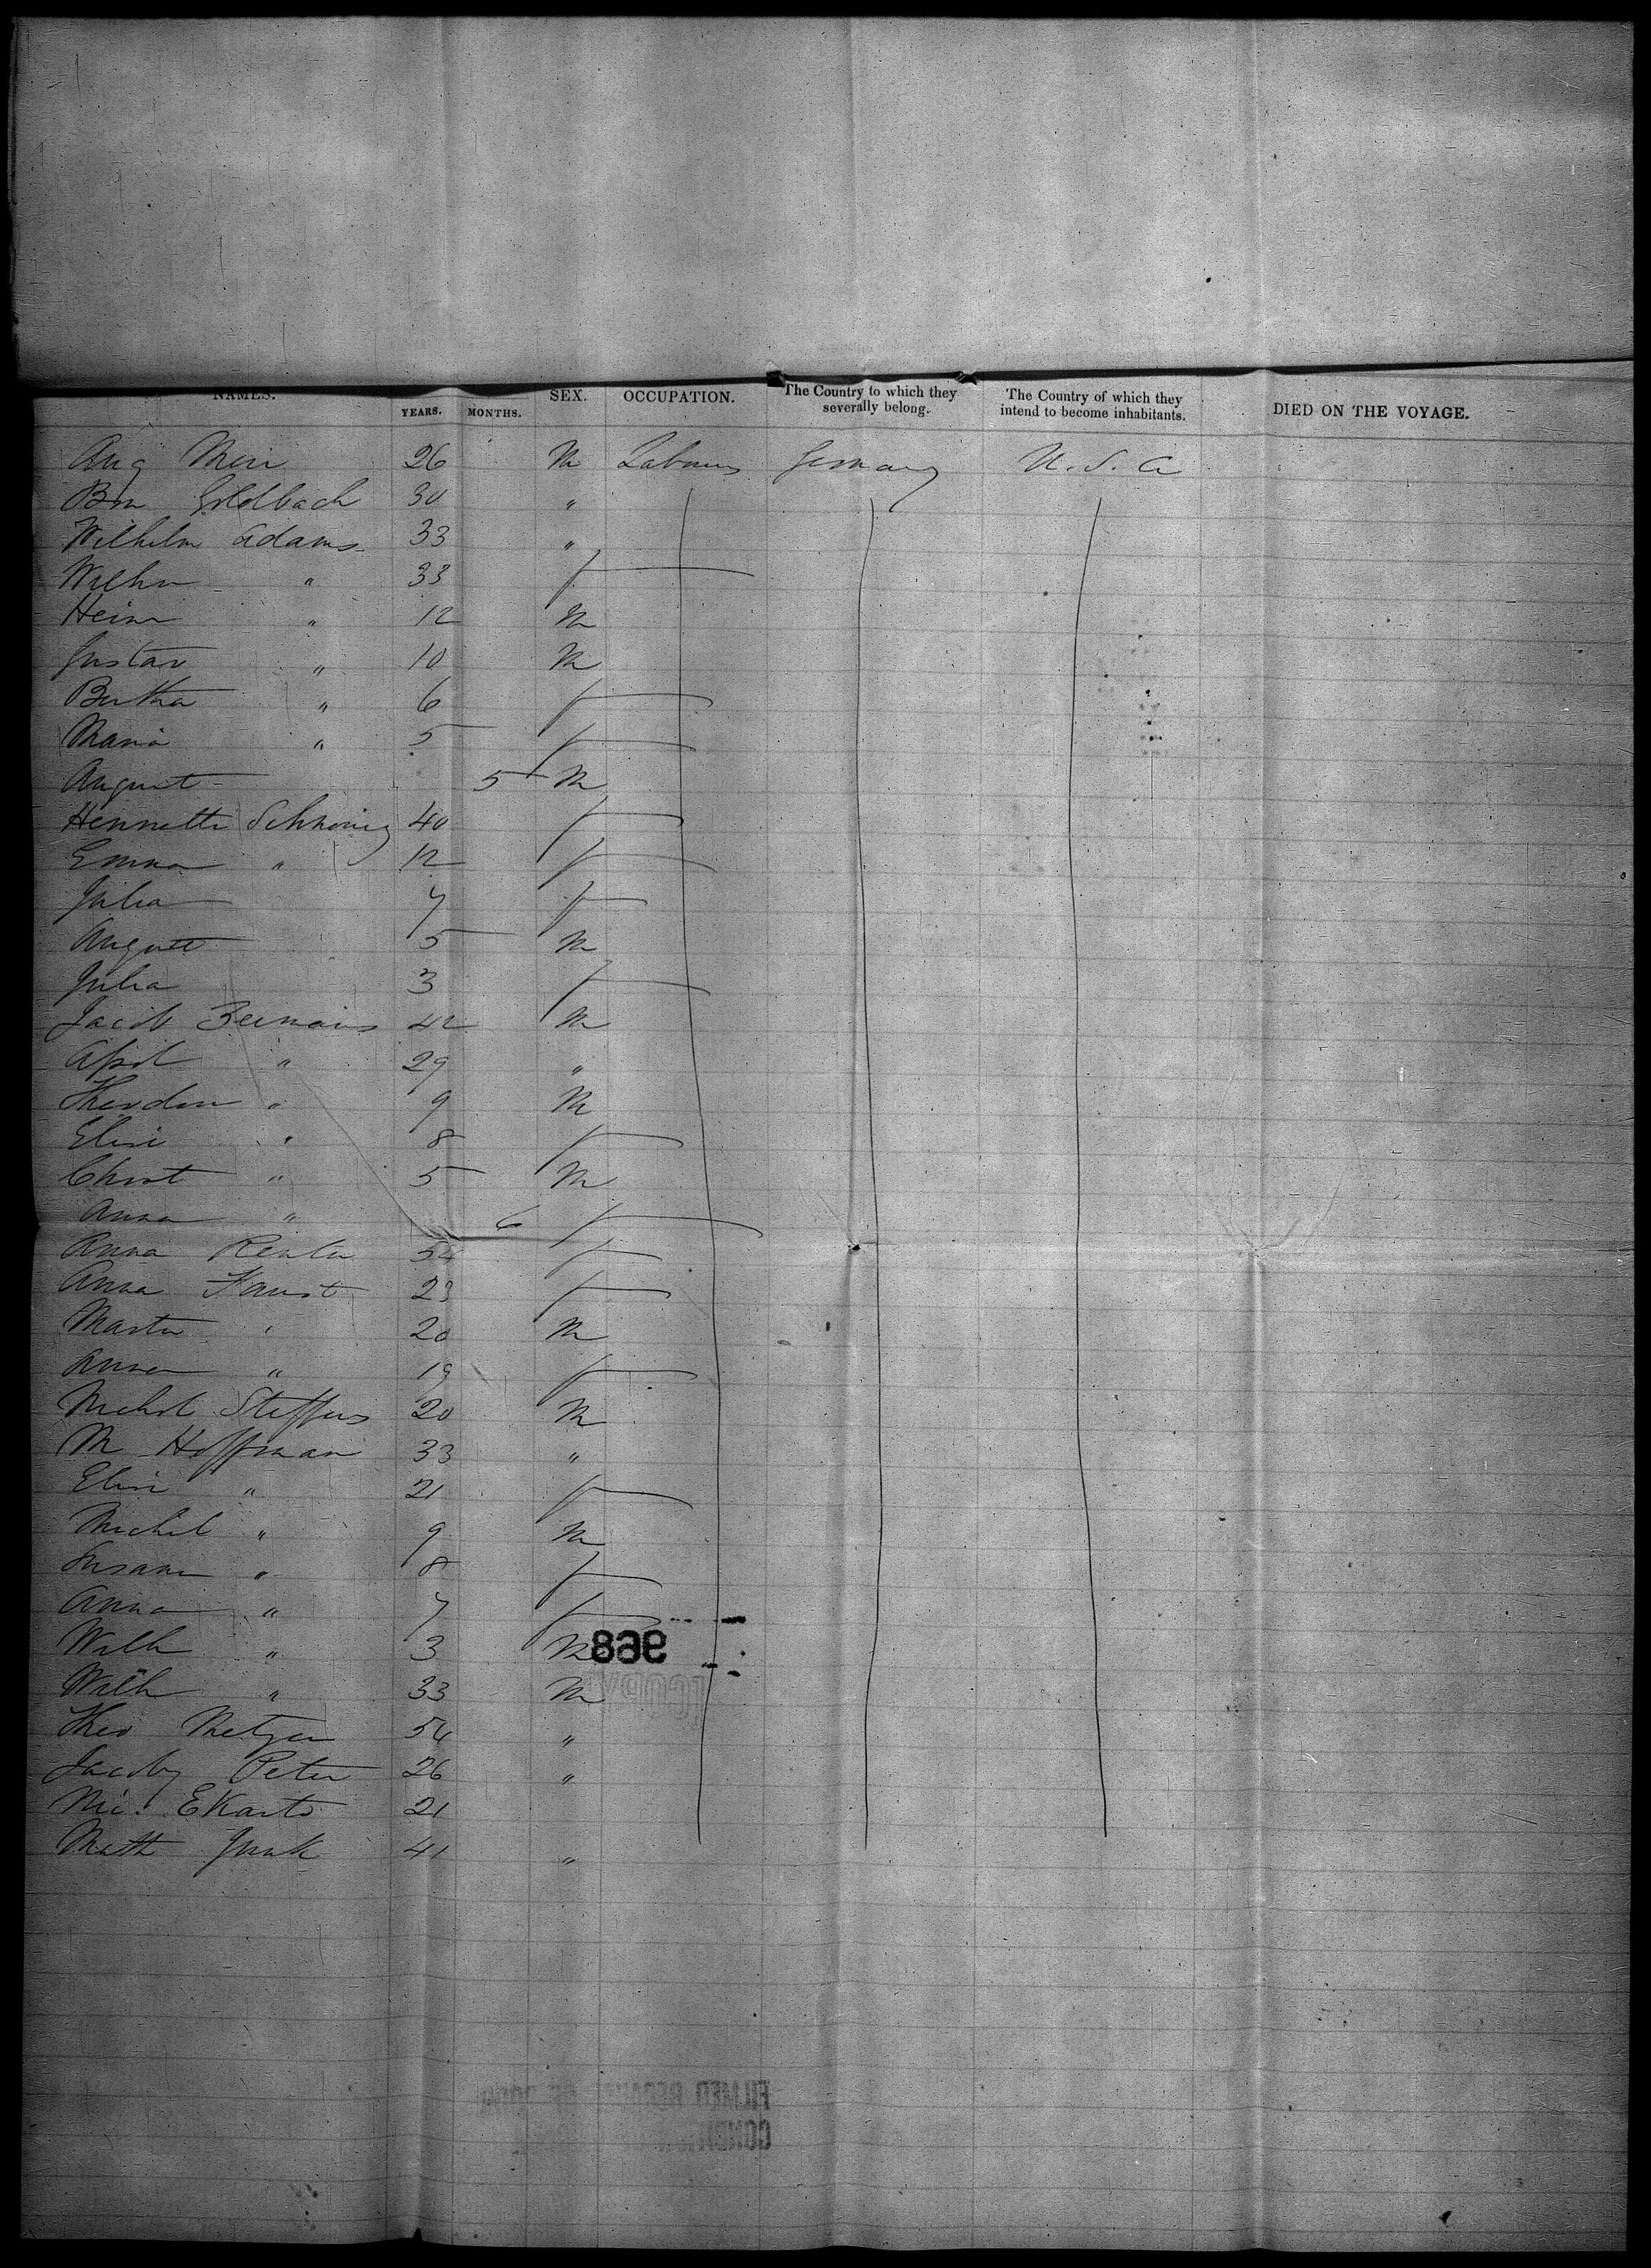 NAMES. YEARS. MONTHS. SEX. OCCUPATION. The Country to which they severally belong. The Country of which they intend to become inhabitants. DIED ON THE VOYAGE.
Aug 26 M Labourers Germany U.S.A
Goldbach 30 "
Wilhelm Adams 33 "
Wilhm " 33 f
Heinr " 12 M
Gustav " 10 M
Bertha " 6 f
Maria " 5 f
August 5 M
40 f
Emma " 12 f
Julia 7 f
August 5 M
Julia 3 f
Jacob 42 M
" 29 "
Theodor " 9 M
Elise " 8 f
Christ " 5 M
Anna " 6 f
Anna 54 f
Anna Faust 23 f
Martin " 20 M
Anna " 19 f
Michel Steffens 20 M
M Hoffman 33 "
Elise " 21 f
Michel " 9 M
Susann " 8 f
Anna " 7 f
Wilh " 3 M 968
Wilh " 33 M
Theo Metzen 54 "
Jacoby Peter 26 "
Nic. 21
Math Junk 41 "